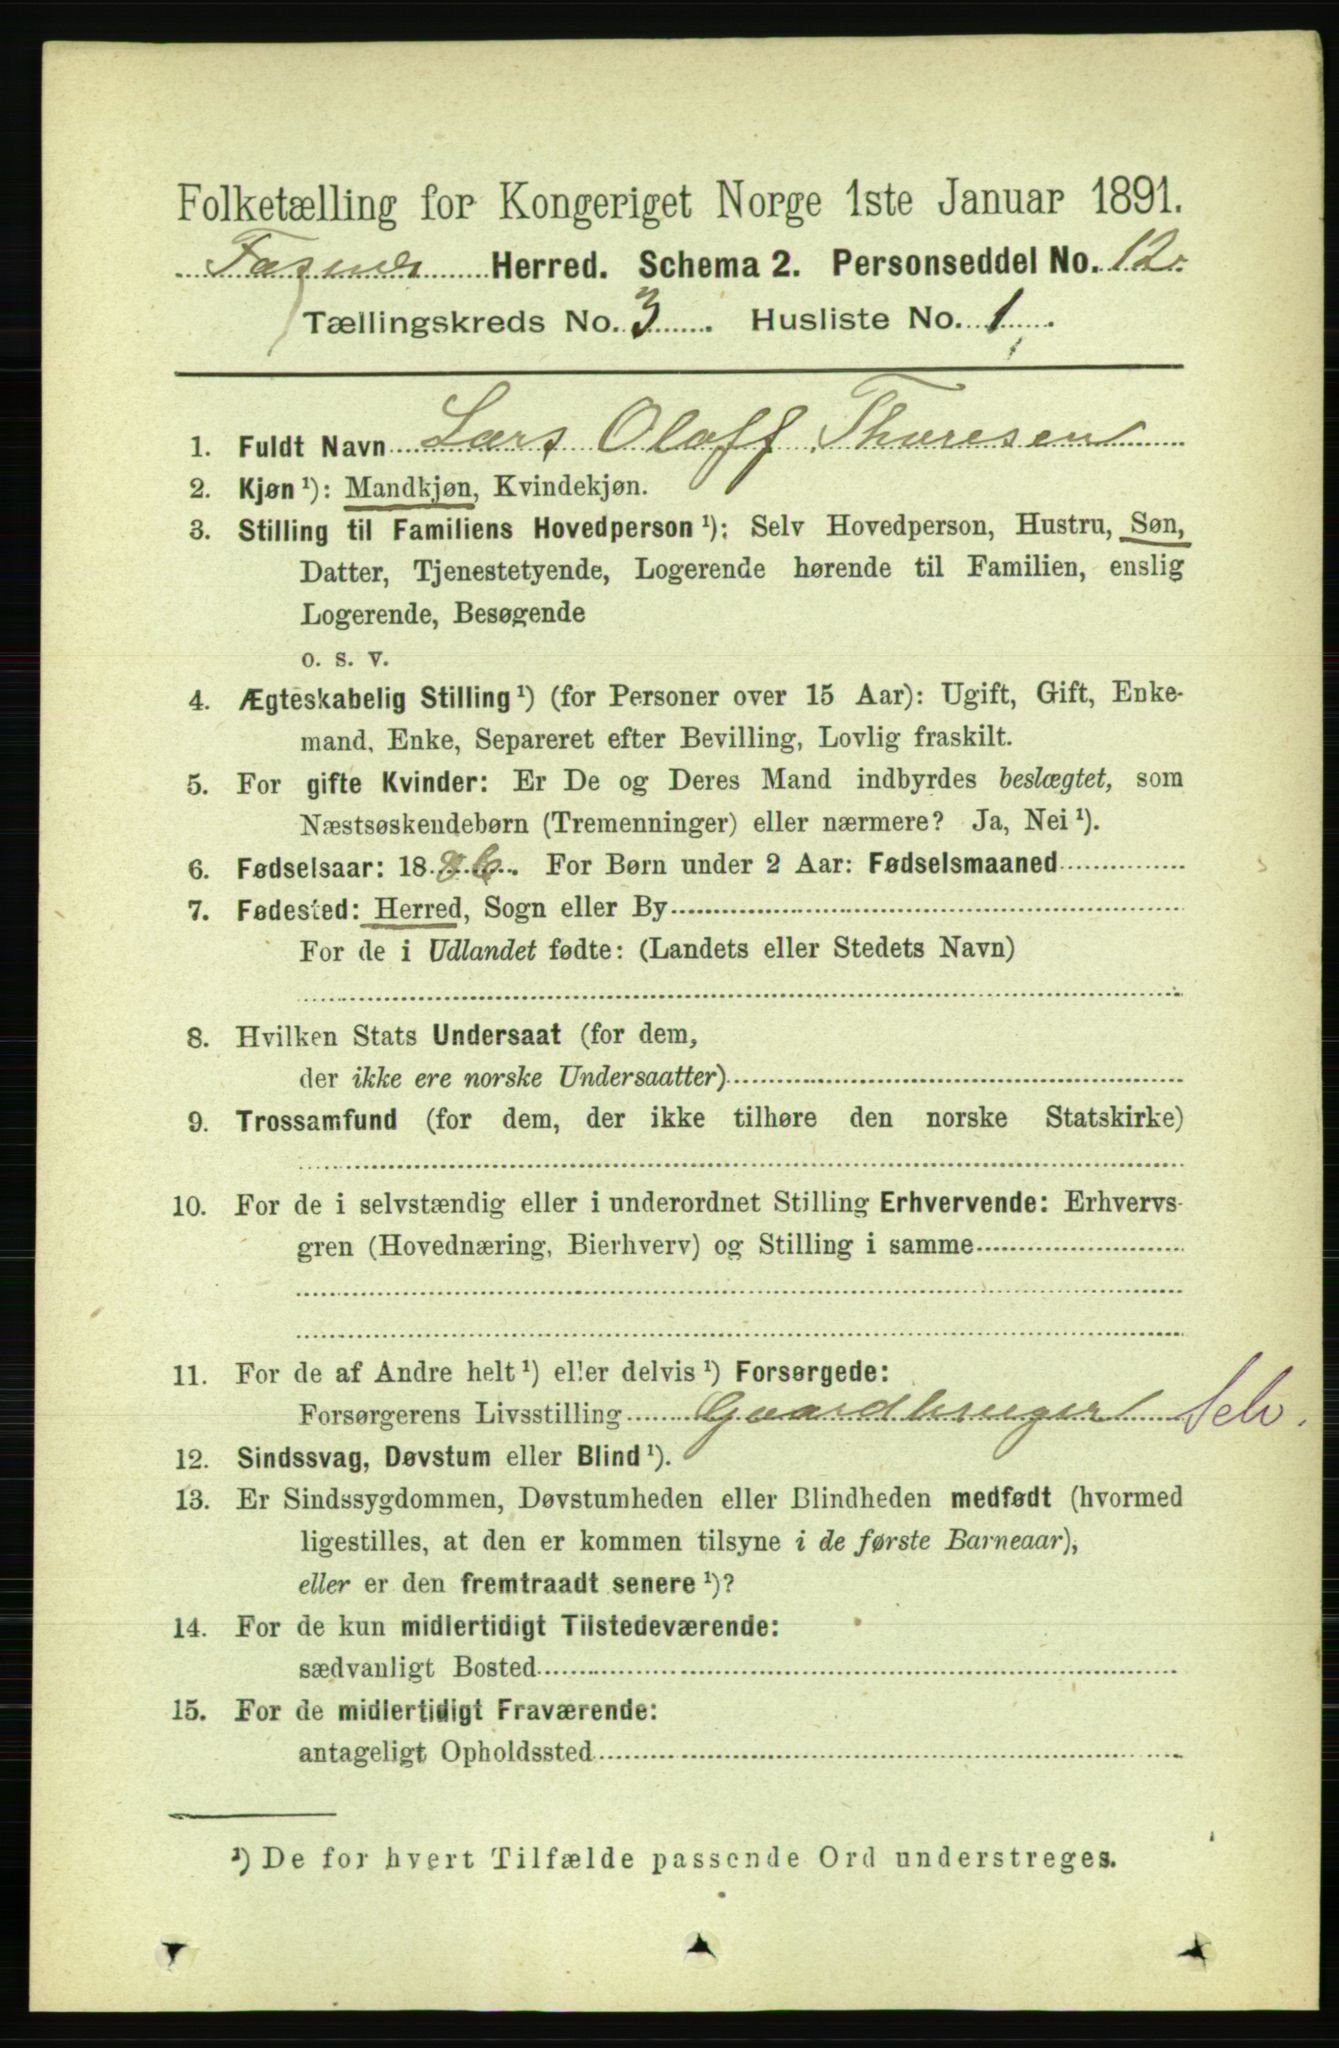 Folketælling for Kongeriget Norge 1ste Januar 1891.
Fosnes Herred. Schema 2. Personseddel No. 12.
Tællingskreds No. 3. Husliste No. 1.
1. Fuldt Navn Lars Olaff Thoresen
2. Kjøn ¹): Mandkjøn, Kvindekjøn.
3. Stilling til Familiens Hovedperson ¹): Selv Hovedperson, Hustru, Søn,
Datter, Tjenestetyende, Logerende hørende til Familien, enslig
Logerende, Besøgende
o. s. v.
4. Ægteskabelig Stilling ¹) (for Personer over 15 Aar): Ugift, Gift, Enke-
mand, Enke, Separeret efter Bevilling, Lovlig fraskilt.
5. For gifte Kvinder: Er De og Deres Mand indbyrdes beslægtet, som
Næstsøskendebørn (Tremenninger) eller nærmere? Ja, Nei ¹).
6. Fødselsaar: 1886. For Børn under 2 Aar: Fødselsmaaned
7. Fødested: Herred, Sogn eller By
For de i Udlandet fødte: (Landets eller Stedets Navn)
8. Hvilken Stats Undersaat (for dem,
der ikke ere norske Undersaatter)
9. Trossamfund (for dem, der ikke tilhøre den norske Statskirke)
10. For de i selvstændig eller i underordnet Stilling Erhvervende: Erhvervs-
gren (Hovednæring, Bierhverv) og Stilling i samme
11. For de af Andre helt ¹) eller delvis ¹) Forsørgede:
Forsørgerens Livsstilling Gaardbruger Selv.
12. Sindssvag, Døvstum eller Blind ¹).
13. Er Sindssygdommen, Døvstumheden eller Blindheden medfødt (hvormed
ligestilles, at den er kommen tilsyne i de første Barneaar),
eller er den fremtraadt senere ¹)?
14. For de kun midlertidigt Tilstedeværende:
sædvanligt Bosted
15. For de midlertidigt Fraværende:
antageligt Opholdssted
¹) De for hvert Tilfælde passende Ord understreges.